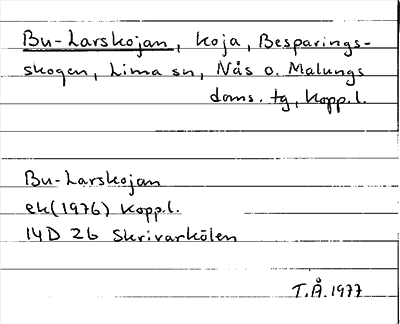 Bu-Larskojan, koja, Besparings-
skogen, Lima sn, Nås o. Malungs
doms. tg, Kopp.l.
Bu-Larskojan
ek(1976) Kopp.l.
14D 2b Skrivarkölen
T.Å.1977